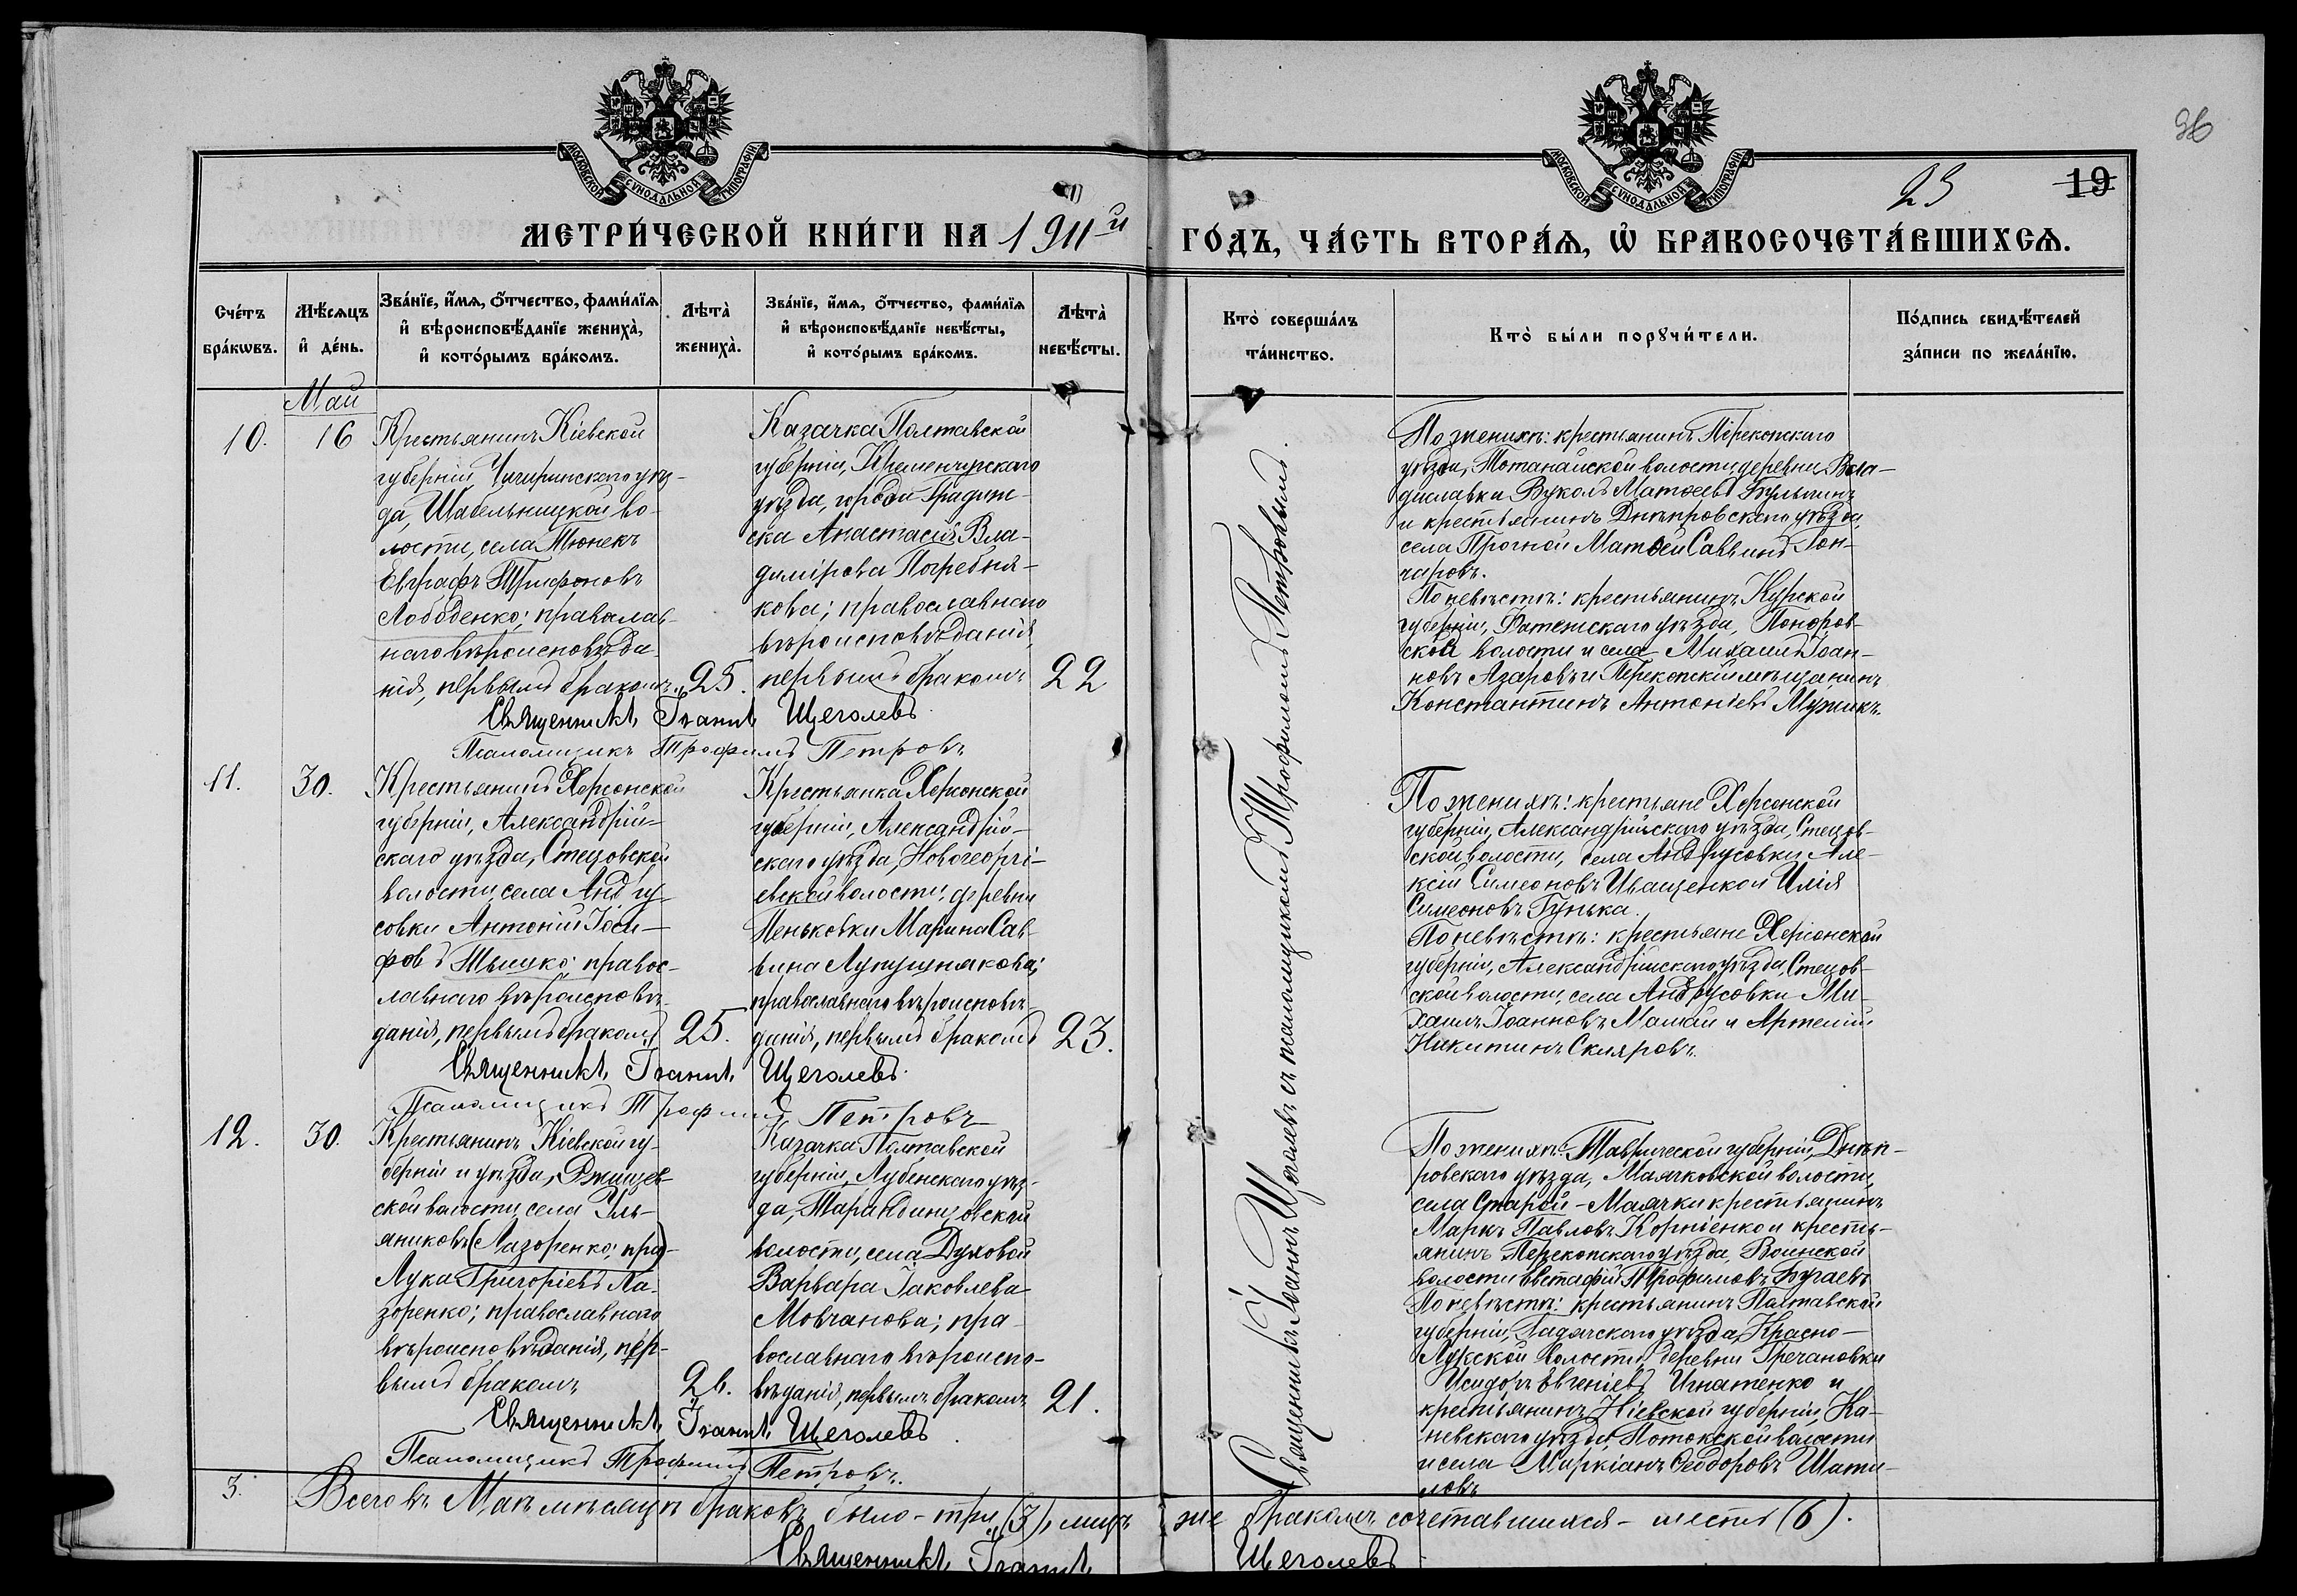 МОСКОВСКОЙ СѴНОДАЛЬНОЙ ТИПОГРАФІИ
МОСКОВСКОЙ СѴНОДАЛЬНОЙ ТИПОГРАФІИ
36
23
19
МЕТРИ́ЧЕСКОЙ КНИ́ГИ НА 1911й
ГО́ДЪ, ЧА́СТЬ ВТОРА́Ѧ, Ѡ҆ БРАКОСОЧЕТА́ВШИХСѦ.
Сче́тъ
бра́кѡвъ.
Мѣ́сѧцъ
и҆ де́нь.
Зва́нїе, и҆́мѧ, ѻ҆́тчество, фами́лїѧ
и҆ вѣроисповѣ́данїе жениха̀,
и҆ кото́рымъ бра́комъ.
Лѣта̀
жениха̀.
Зва́нїе, и҆́мѧ, ѻ҆́тчество, фами́лїѧ
и҆ вѣроисповѣ́данїе невѣ́сты,
и҆ кото́рымъ бра́комъ.
Лѣта̀
невѣ́сты.
Кто̀ соверша́лъ
та́инство.
Кто̀ бы́ли порꙋчи́тели.
По́дпись свидѣ́телей
за́писи по жела́нїю.
Май
10.
16
Крестьянинъ Кіевской
губерніи, Чигиринскаго уѣз-
да, Шабельницкой во-
лости, села Тюнекъ
Евграфъ Трифоновъ
Лободенко; православ-
наго вѣроисповѣда-
нія, первымъ бракомъ.
25.
Казачка Полтавской
губерніи, Кременчугскаго
уѣзда, города Градиж-
ска Анастасія Вла-
димірова Погребня-
кова; православнаго
вѣроисповѣданія,
первымъ бракомъ
22
Священникъ Іоаннъ Щеголевъ
Псаломщикъ Трофимъ Петровъ
По женихѣ: крестьянинъ Перекопскаго
уѣзда, Тотанайской волости, деревни Вла-
диславки Вуколъ Матѳеевъ Булыгинъ
и крестьянинъ Днѣпровскаго уѣзда,
села Прогной Матѳей Саввинъ Гон-
чаровъ.
По невѣстѣ: крестьянинъ Курской
губерніи, Фатежскаго уѣзда, Поныров-
ской волости и села Михаилъ Іоан-
новъ Азаровъ и Перекопскій мѣщанинъ
Константинъ Антоніевъ Мужикъ.
Священникъ Іоаннъ Щеголевъ съ псаломщикомъ Трофимомъ Петровымъ.
11.
30.
Крестьянинъ Херсонской
губерніи, Александрій-
скаго уѣзда, Стецовской
волости, села Андру-
совки Антоній Іоси-
фовъ Тышко; правос-
лавнаго вѣроисповѣ-
данія, первымъ бракомъ
25.
Крестьянка Херсонской
губерніи, Александрій-
скаго уѣзда, Новогеоргі-
евской волости, деревни
Пеньковки Марина Сав-
вина Лупушнякова;
православнаго вѣроисповѣ-
данія, первымъ бракомъ
23.
Священникъ Іоаннъ Щеголевъ.
Псаломщикъ Трофимъ Петровъ
По женихѣ: крестьяне Херсонской
губерніи, Александрійскаго уѣзда, Стецов-
ской волости, села Андрусовки Але-
ксій Симеоновъ Иващенко и Илія
Симеоновъ Гунька.
По невѣстѣ: крестьяне Херсонской
губерніи, Александрійскаго уѣзда, Стецов-
ской волости, села Андрусовки Ми-
хаилъ Іоанновъ Мамай и Артемій
Никитинъ Скляровъ.
12.
30.
Крестьянинъ Кіевской гу-
берніи и уѣзда, Ржищев-
ской волости, села Уль-
яниковъ (Лазоренко; пра)-
Лука Григоріевъ Ла-
зоренко; православнаго
вѣроисповѣданія, пер-
вымъ бракомъ
26.
Казачка Полтавской
губерніи, Лубенскаго уѣз-
да, Тарандинцовской
волости, села Духовой
Варвара Іаковлева
Мовчанова; пра-
вославнаго вѣроиспо-
вѣданія, первымъ бракомъ
21.
Священникъ Іоаннъ Щеголевъ.
Псаломщикъ Трофимъ Петровъ.
По женихѣ: Таврической губерніи, Днѣп-
ровскаго уѣзда, Маячковской волости,
села Старой-Маячки крестьянинъ
Маркъ Павловъ Корніенко и кресть-
янинъ Перекопскаго уѣзда, Воинской
волости Евстафій Трофимовъ Бугаевъ
По невѣстѣ: крестьянинъ Полтавской
губерніи, Гадячскаго уѣзда, Красно-
Лукской волости, деревни Гречановки
Исидоръ Евгеніевъ Игнатенко и
крестьянинъ Кіевской губерніи, Ка-
невскаго уѣзда, Потокской волости
и села Маркіанъ Ѳеодоровъ Шати-
ловъ
3.
Всего въ Маѣ мѣсяцѣ браковъ было - три (3), лицъ же бракомъ сочетавшихся - шесть (6).
Священникъ Іоаннъ Щеголевъ